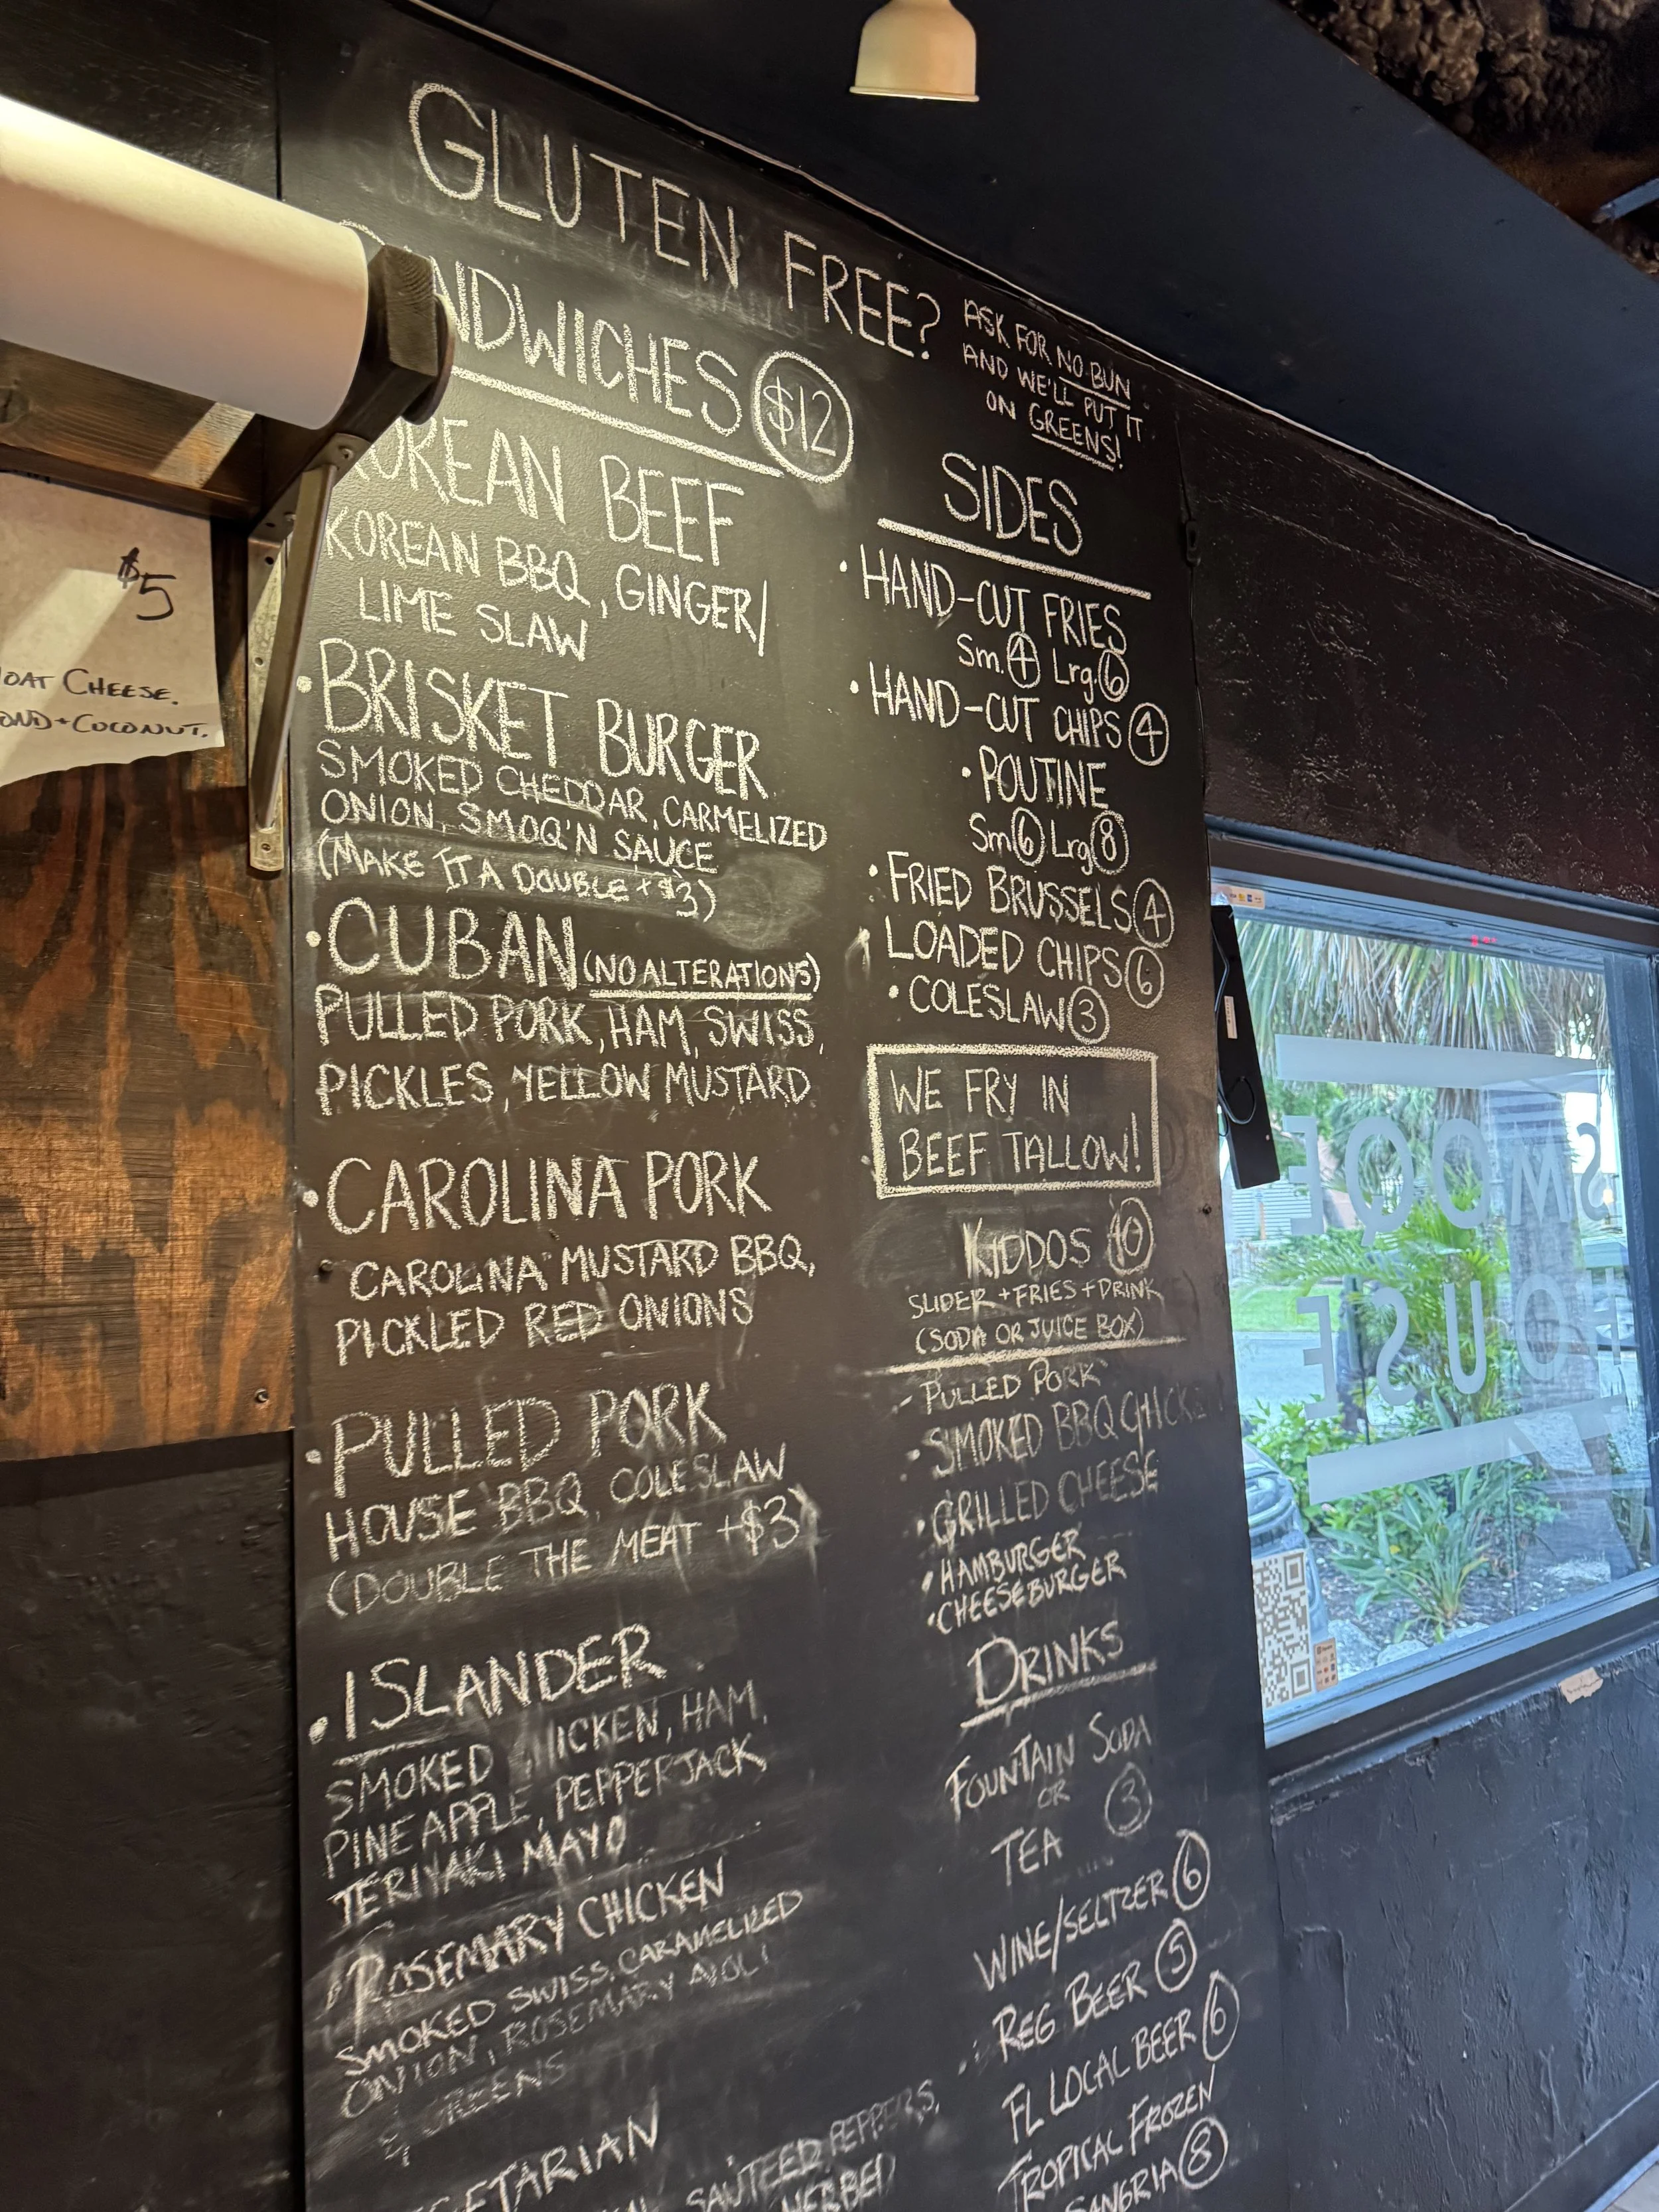 GLUTEN FREE?
ASK FOR NO BUN
AND WE'LL PUT IT
ON GREENS!
$12
KOREAN BEEF
KOREAN BBQ, GINGER/
LIME SLAW
• BRISKET BURGER
SMOKED CHEDDAR, CARMELIZED
ONION, SMOQ'N SAUCE
(MAKE IT A DOUBLE +$3)
• CUBAN (NO ALTERATIONS)
PULLED PORK, HAM, SWISS,
PICKLES, YELLOW MUSTARD
• CAROLINA PORK
CAROLINA MUSTARD BBQ,
PICKLED RED ONIONS
• PULLED PORK
HOUSE BBQ, COLESLAW
(DOUBLE THE MEAT +$3)
• ISLANDER
SMOKED HICKEN, HAM,
PINEAPPLE, PEPPERJACK
TERIYAKI MAYO
ROSEMARY CHICKEN
SMOKED SWISS, CARAMELIZED
ONION, ROSEMARY AIOLI
& GREENS
SAUTEED PEPPERS,
HERBED
SIDES
• HAND-CUT FRIES
Sm. 4 Lrg. 6
• HAND-CUT CHIPS 4
• POUTINE
Sm 6 Lrg 8
• FRIED BRUSSELS 4
LOADED CHIPS 6
• COLESLAW 3
WE FRY IN
BEEF TALLOW!
KIDDOS 10
SLIDER + FRIES + DRINK
(SODA OR JUICE BOX)
- PULLED PORK
• SMOKED BBQ CHICKE
• GRILLED CHEESE
• HAMBURGER
• CHEESEBURGER
DRINKS
FOUNTAIN SODA
OR 3
TEA
WINE/SELTZER 6
REG BEER 5
FL LOCAL BEER 6
TROPICAL FROZEN
SANGRIA 8
$5
CHEESE.
+ COCONUT.
SMOQE
HOUSE